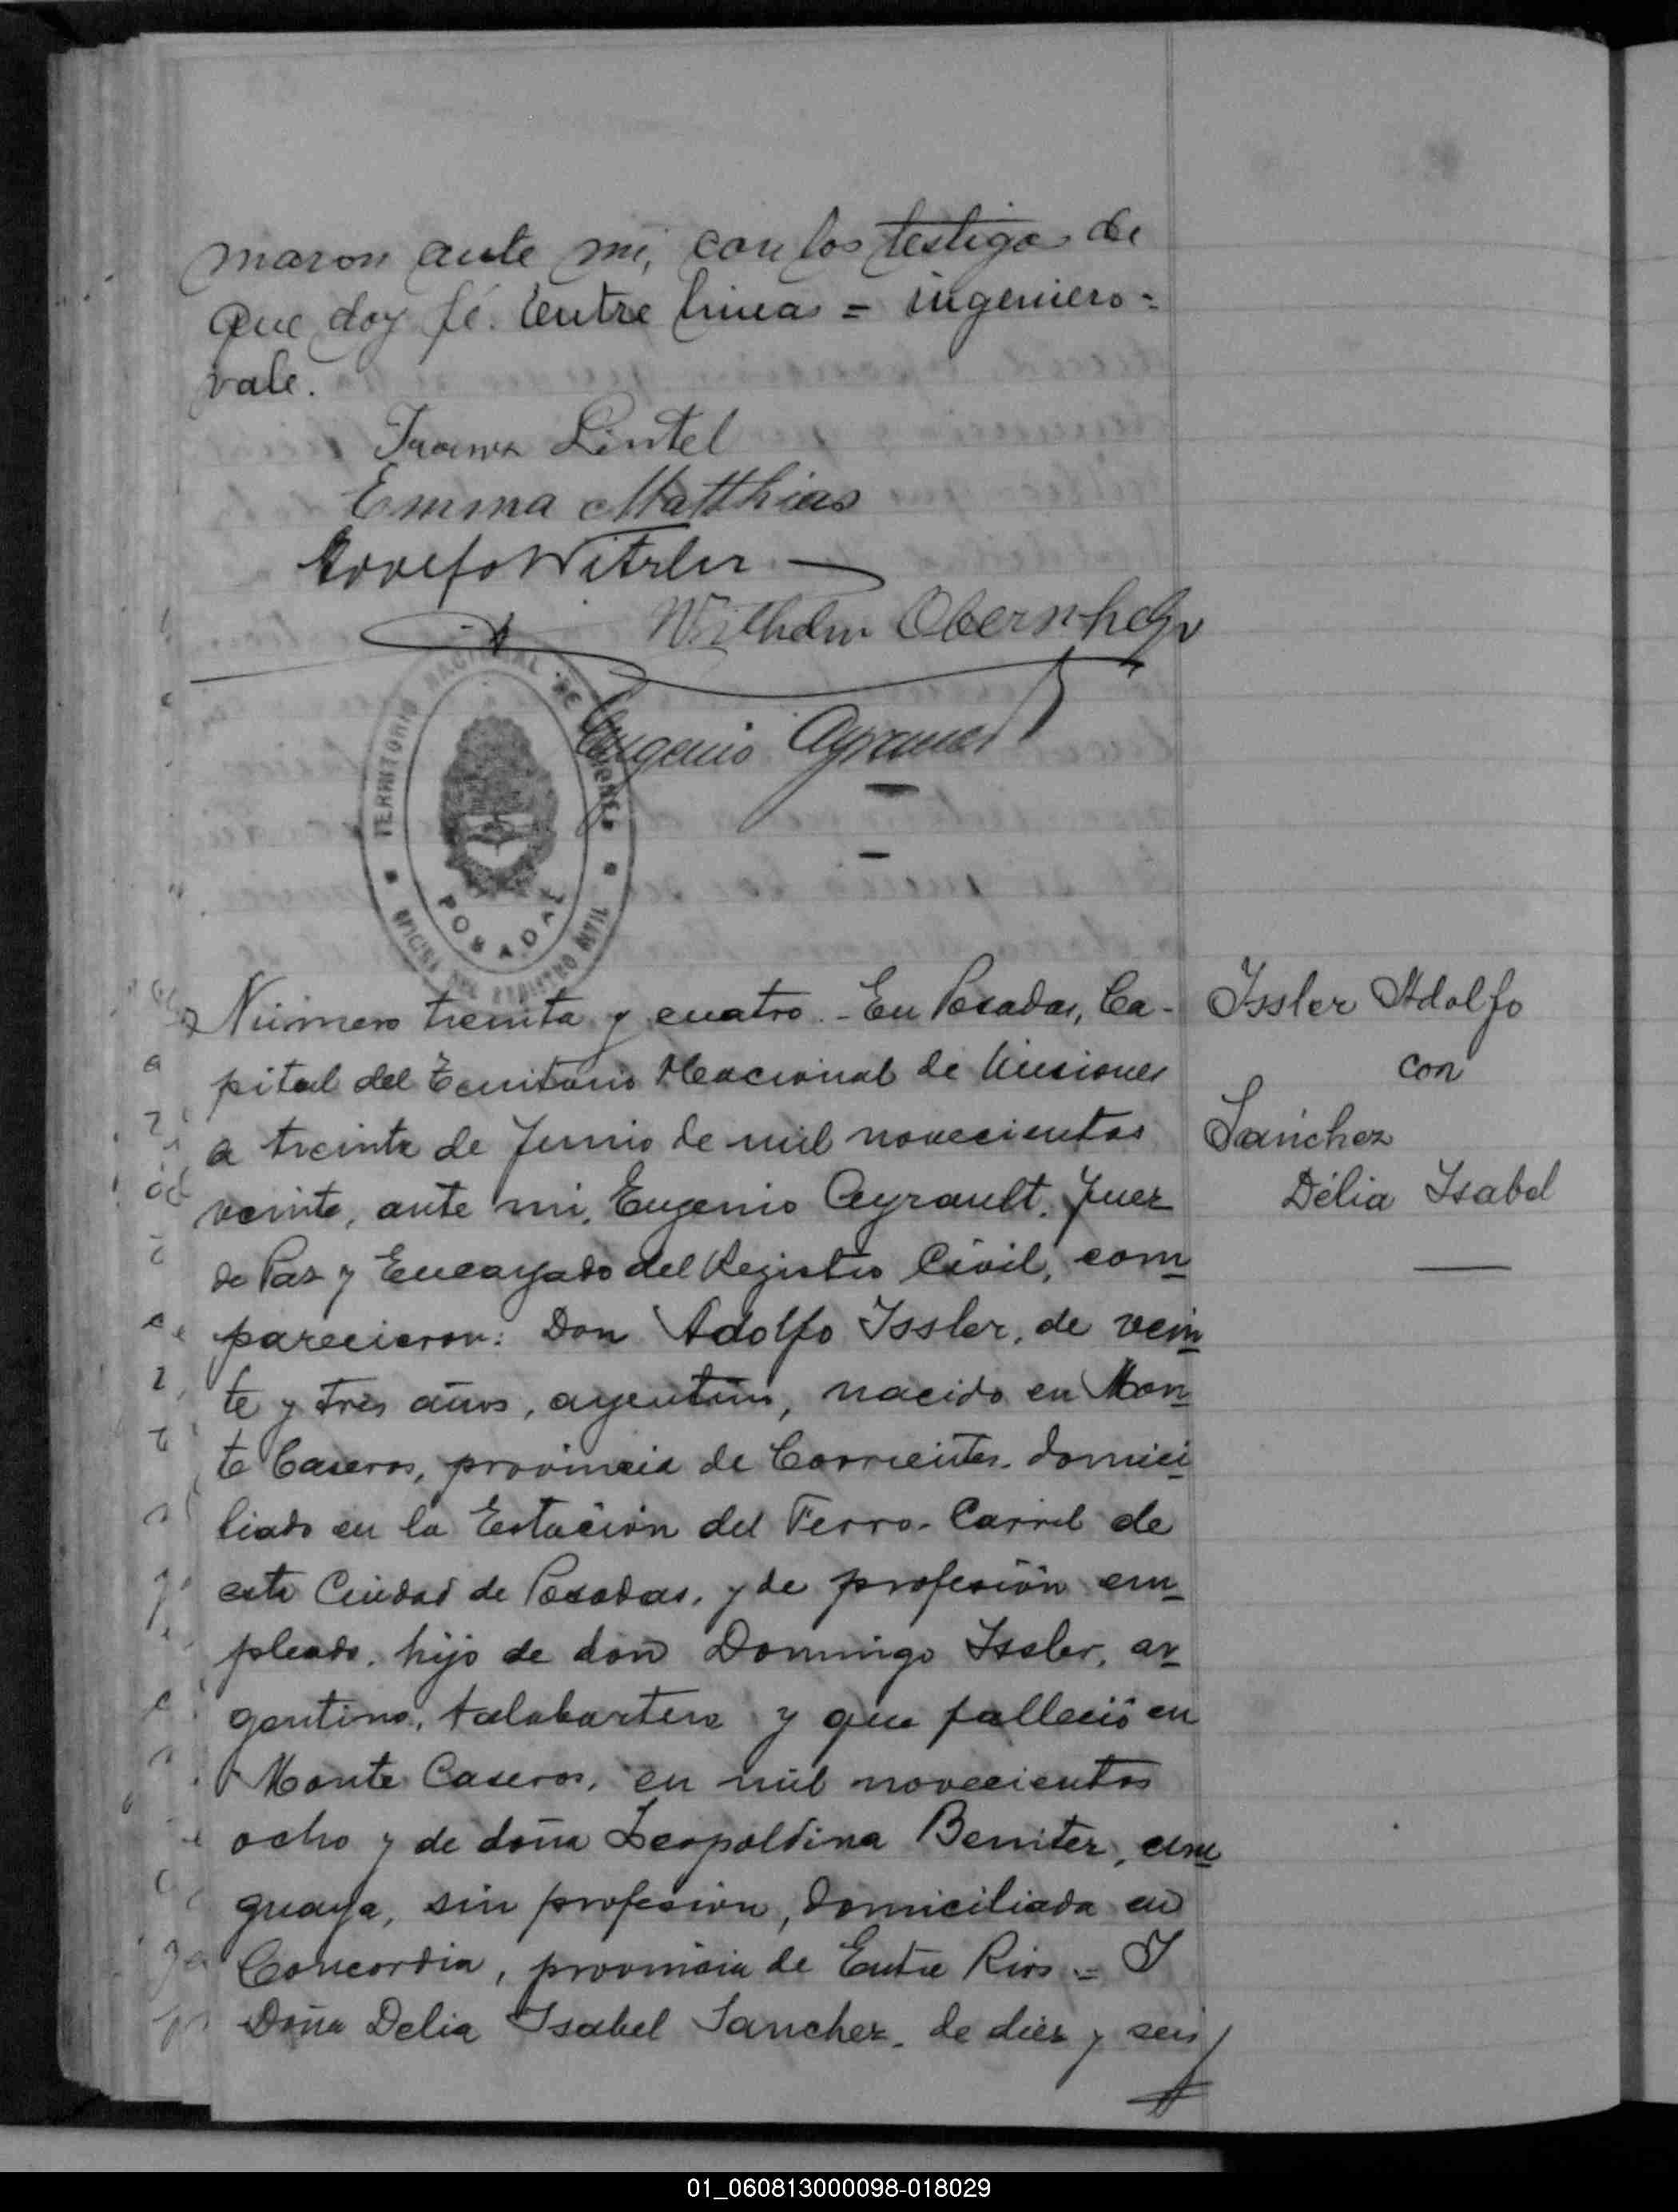 maron ante mi, con los testigos de
que doy fé. Entre lineas = ingeniero =
vale.
Lintel
Emma Matthias
Adolfo
Wilhelm
Eugenio Ayrault
TERRITORIO NACIONAL DE MISIONES
POSADAS
OFICINA DEL REGISTRO CIVIL
Número treinta y cuatro. - En Posadas, Ca-
pital del Territorio Nacional de Misiones
a treinta de Junio de mil novecientos
veinte, ante mi, Eugenio Ayrault, Juez
de Paz y Encargado del Registro Civil, com
parecieron: Don Adolfo Issler, de vein
te y tres años, argentino, nacido en Mon
te Caseros, provincia de Corrientes, domici
liado en la Estación del Ferro-Carril de
esta Ciudad de Posadas, y de profesión em
pleado, hijo de don Domingo Issler, ar
gentino, talabartero y que falleció en
Monte Caseros, en mil novecientos
ocho y de doña Leopoldina Benitez, uru
guaya, sin profesion, domiciliada en
Concordia, provincia de Entre Rios = Y
Doña Delia Isabel Sanchez, de diez y seis
Issler Adolfo
con
Sanchez
Délia Isabel
01_060813000098-018029